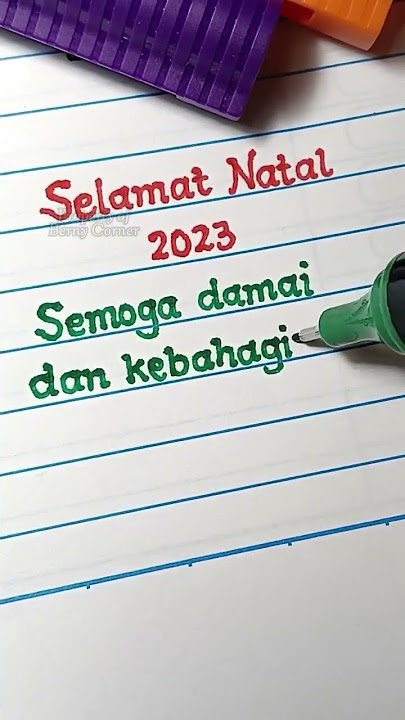 Selamat Natal
Property of
Berny Corner
2023
Semoga damai
dan kebahagi